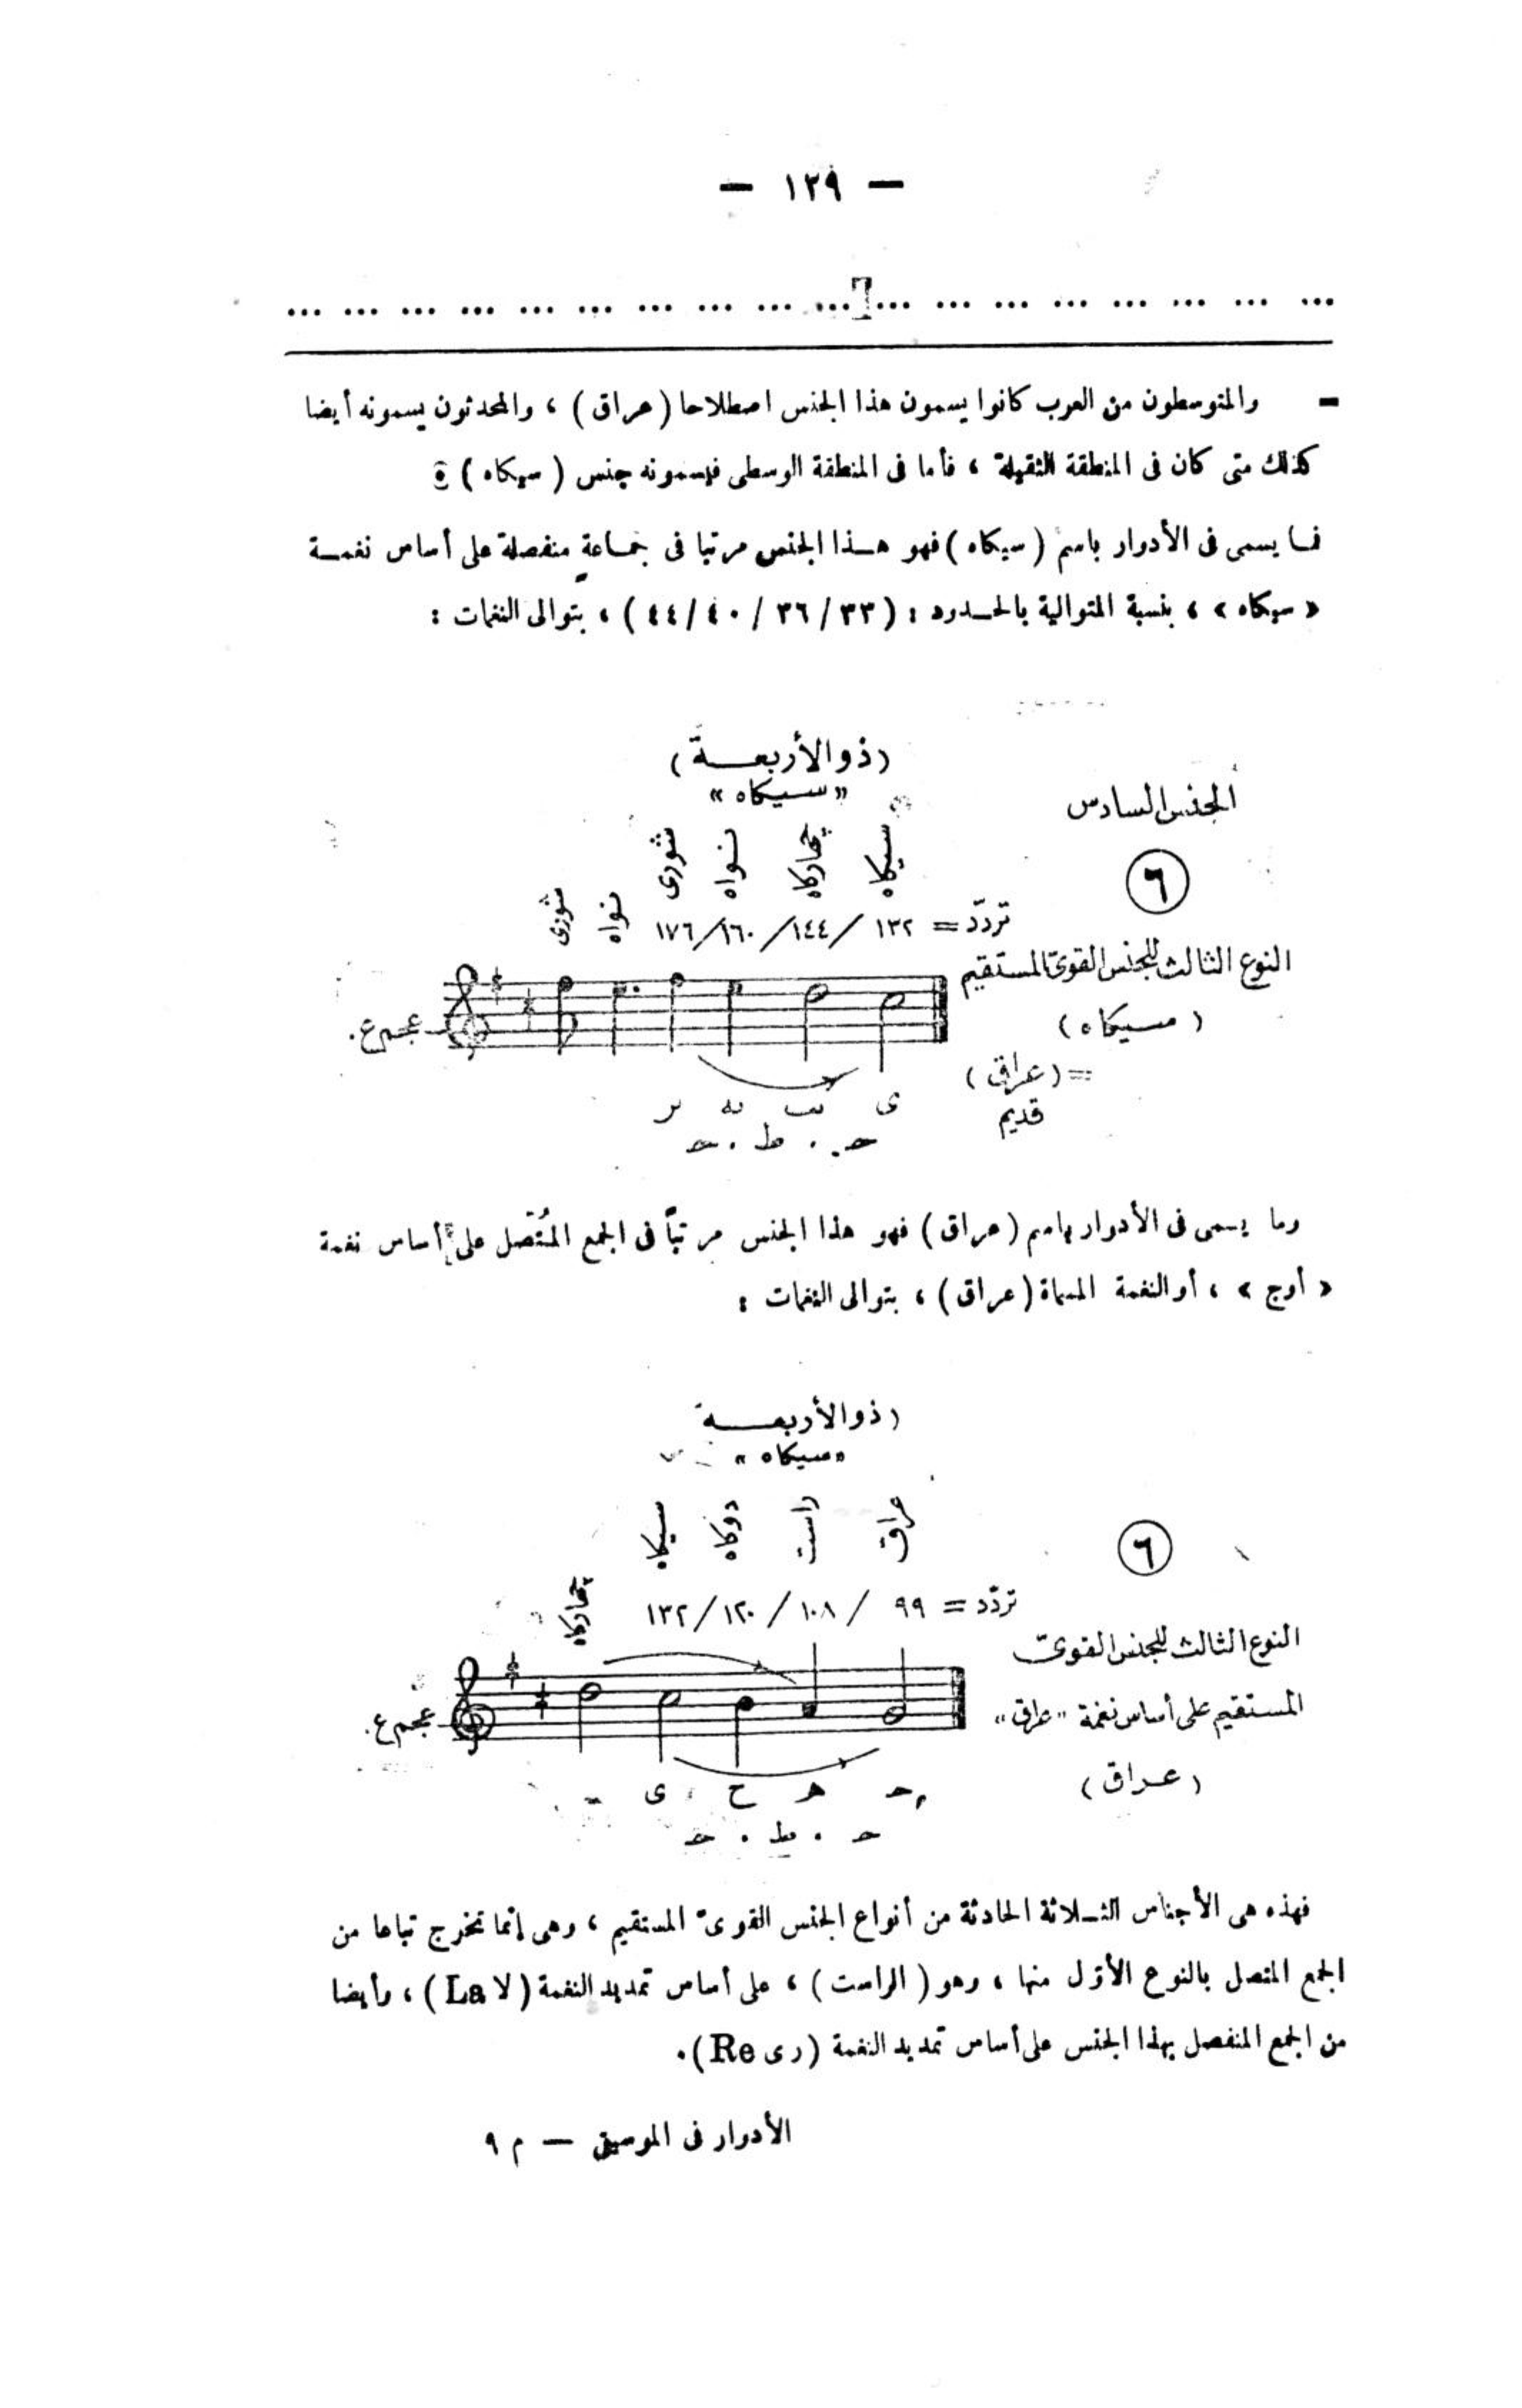 — ١٢٩ —
... ... ... ... ... ... ... ... ... ... ... ... ... ... ... ... ... ...
— والمتوسطون من العرب كانوا يسمون هذا الجنس اصطلاحا (عراق) ، والمحدثون يسمونه أيضا
كذلك متى كان فى المنطقة الثقيلة ، فأما فى المنطقة الوسطى فيسمونه جنس (سيكاه) ،
فما يسمى فى الأدوار باسم (سيكاه) فهو هذا الجنس مرتبا فى جماعة منفصلة على أساس نغمة
« سيكاه » ، بنسبة المتوالية بالحدود : (٣٣/٣٦/٤٠/٤٤) ، بتوالى النغمات :
(ذو الأربعة)
« سيكاه »
الجنس السادس
٦
سيكاه چهاركاه نواه شورى نواه شورى
تردّد = ١٣٢/١٤٤/١٦٠/١٧٦
النوع الثالث للجنس القوىّ المستقيم
(سيكاه)
= (عراق)
قديم
عجم ع.
ى يب يه يز
جـ . ط . جـ
وما يسمى فى الأدوار باسم (عراق) فهو هذا الجنس مرتبًا فى الجمع المُتّصل على أساس نغمة
« أوج » ، أو النغمة المسماة (عراق) ، بتوالى النغمات :
(ذو الأربعة
« سيكاه »
عراق راست دوكاه سيكاه چهاركاه
٦
تردّد = ٩٩/١٠٨/١٢٠/١٣٢
النوع الثالث للجنس القوىّ
المستقيم على أساس نغمة « عراق »
(عراق)
عجم ع.
جـ هـ ح ى
جـ . ط . جـ
فهذه هى الأجناس الثلاثة الحادثة من أنواع الجنس القوىّ المستقيم ، وهى إنما تخرج تباعا من
الجمع المتصل بالنوع الأوّل منها ، وهو (الراست) ، على أساس تمديد النغمة (لا La) ، وأيضا
من الجمع المنفصل بهذا الجنس على أساس تمديد النغمة (رى Re).
الأدوار فى الموسيقى — م ٩